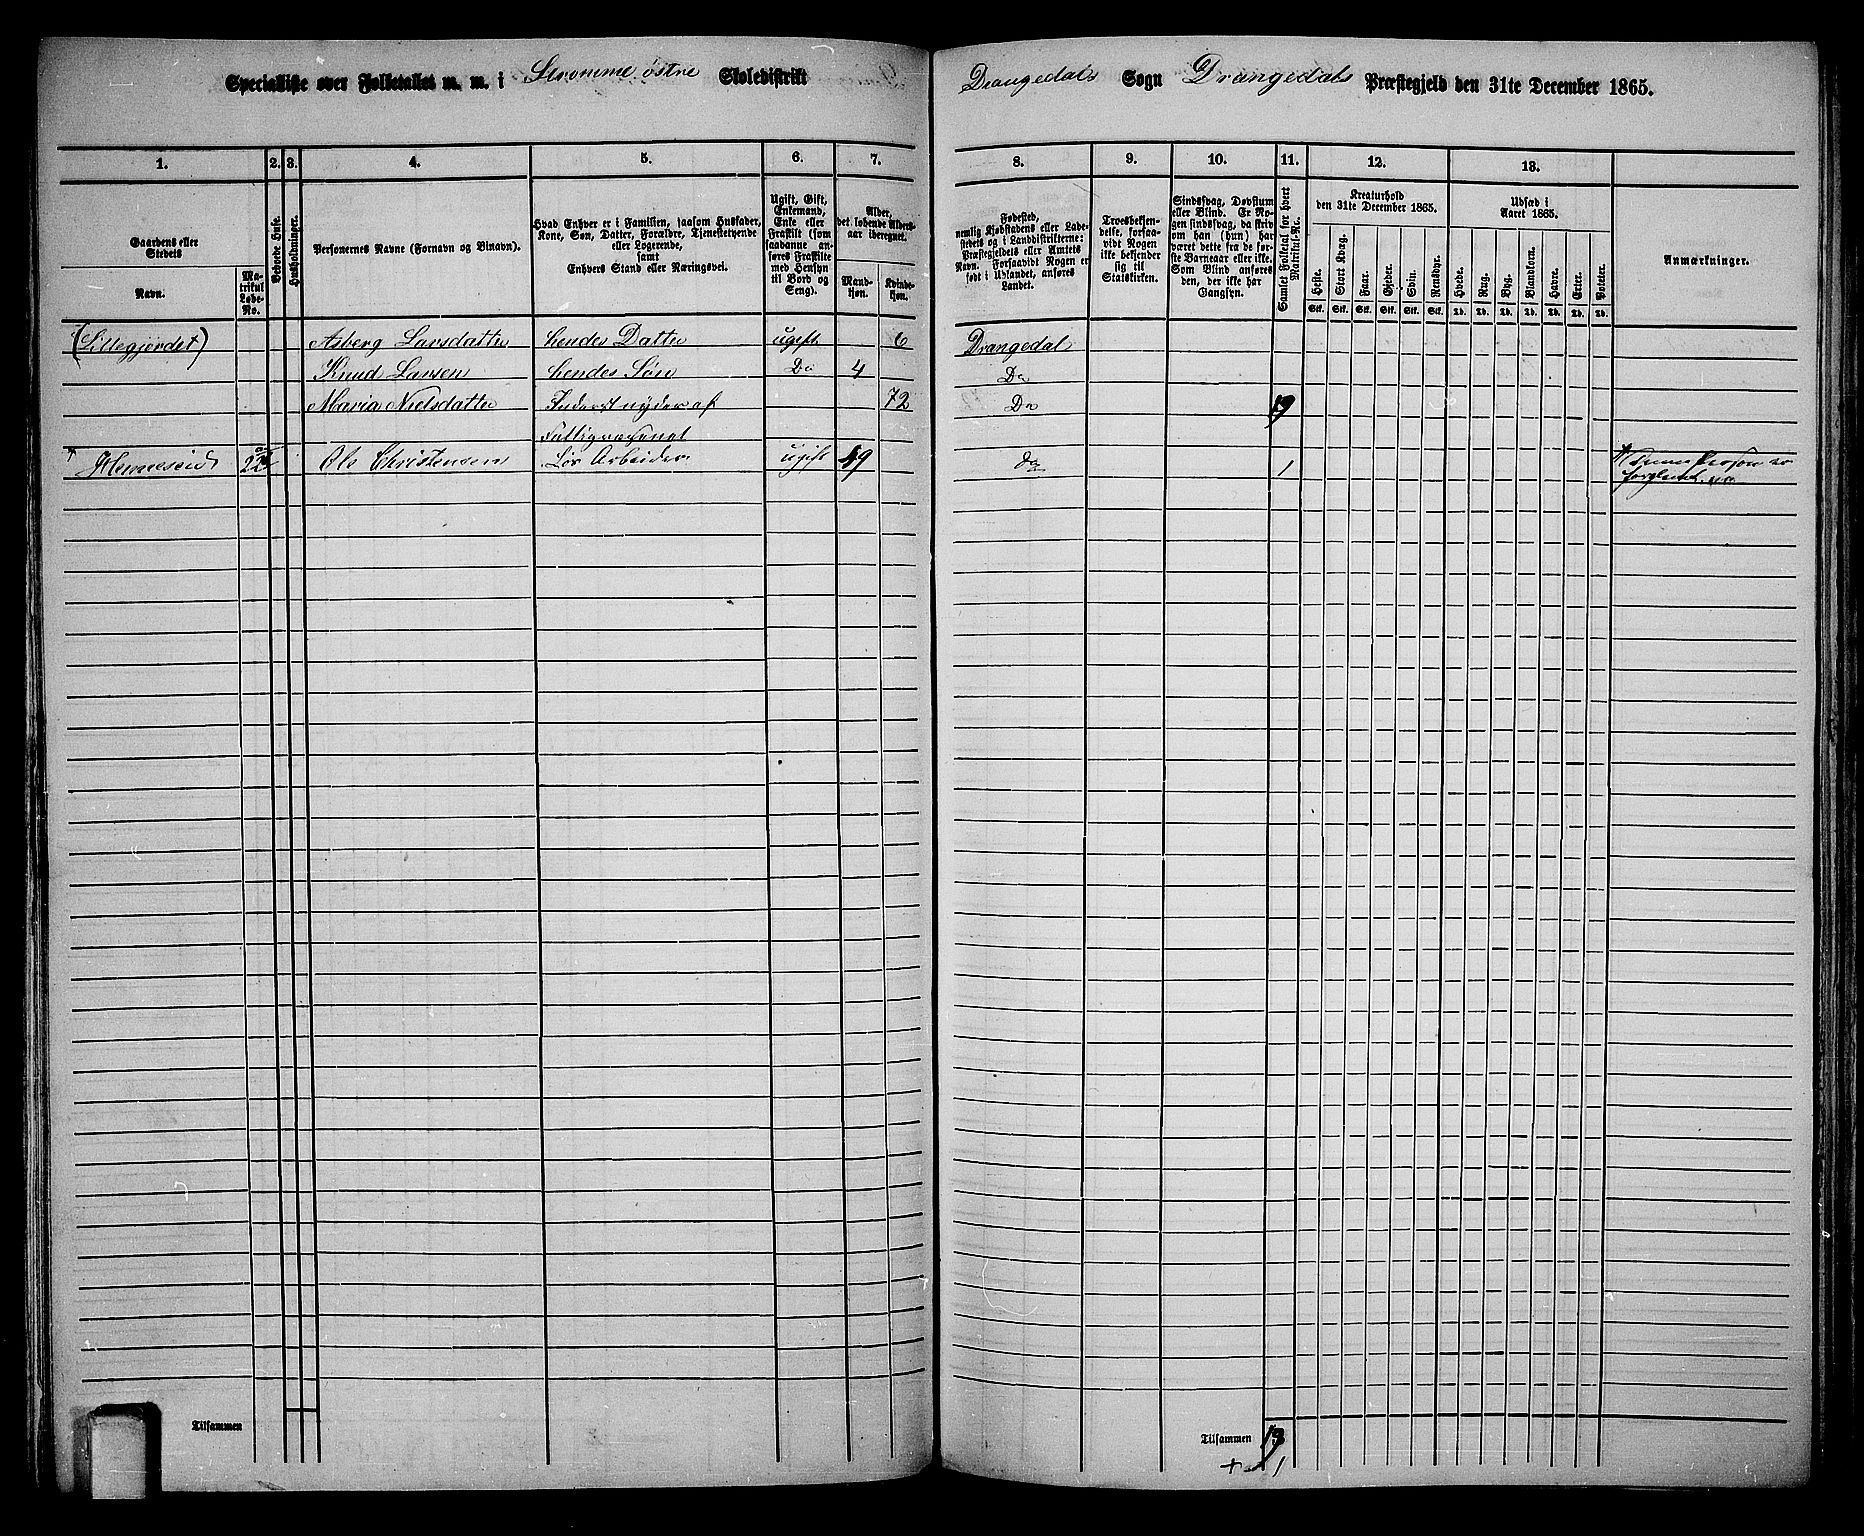 Specialliste over Folketallet m. m. i Strømme østre Skoledistrikt Drangedals Sogn Drangedals Præstegjeld den 31te December 1865.
1. 2. 3. 4. 5. 6. 7. 8. 9. 10. 11. 12. 13.
Gaardens eller Stedets
Navn.
Matrikul Løbe-No.
Beboede Huse.
Husholdninger.
Personernes Navne (Fornavn og Binavn).
Hvad Enhver er i Familien, saasom Husfader, Kone, Søn, Datter, Forældre, Tjenestetyende eller Logerende, samt Enhvers Stand eller Næringsvei.
Ugift, Gift, Enkemand, Enke eller Fraskilt (som saadanne anføres Fraskilte med Hensyn til Bord og Seng).
Alder, det løbende Aldersaar iberegnet.
Mandkjøn.
Kvindekjøn.
Fødested, nemlig Kjøbstadens eller Ladestedets og i Landdistrikterne: Præstegjeldets eller Amtets Navn. Forsaavidt Nogen er født i Udlandet, anføres Landet.
Troesbekjendelse, forsaavidt Nogen ikke bekjender sig til Statskirken.
Sindssvag, Døvstum eller Blind. Er Nogen sindssvag, da skriv om han (hun) har været dette fra de første Barneaar eller ikke. Som Blind anføres den, der ikke har Gangsyn.
Samlet Folketal for hvert Matrikul-Nr.
Kreaturhold den 31te December 1865.
Heste. Stort Kvæg. Faar. Gjeder. Svin. Rensdyr.
Stk. Stk. Stk. Stk. Stk. Stk.
Udsæd i Aaret 1865.
Hvede. Rug. Byg. Blandkorn. Havre. Erter. Poteter.
Td. Td. Td. Td. Td. Td. Td.
Anmærkninger.
(Lillegjordet) Asberg Larsdatter hendes Datter ugift 6 Drangedal
Knud Larsen hendes Søn Do 4 Do
Maria Nielsdatter Inderst nyder af 72 Do 9
Fattigvæsenet
Ole Christensen Løs Arbeider ugift 49 do 1
Tilsammen
Tilsammen
+ 1